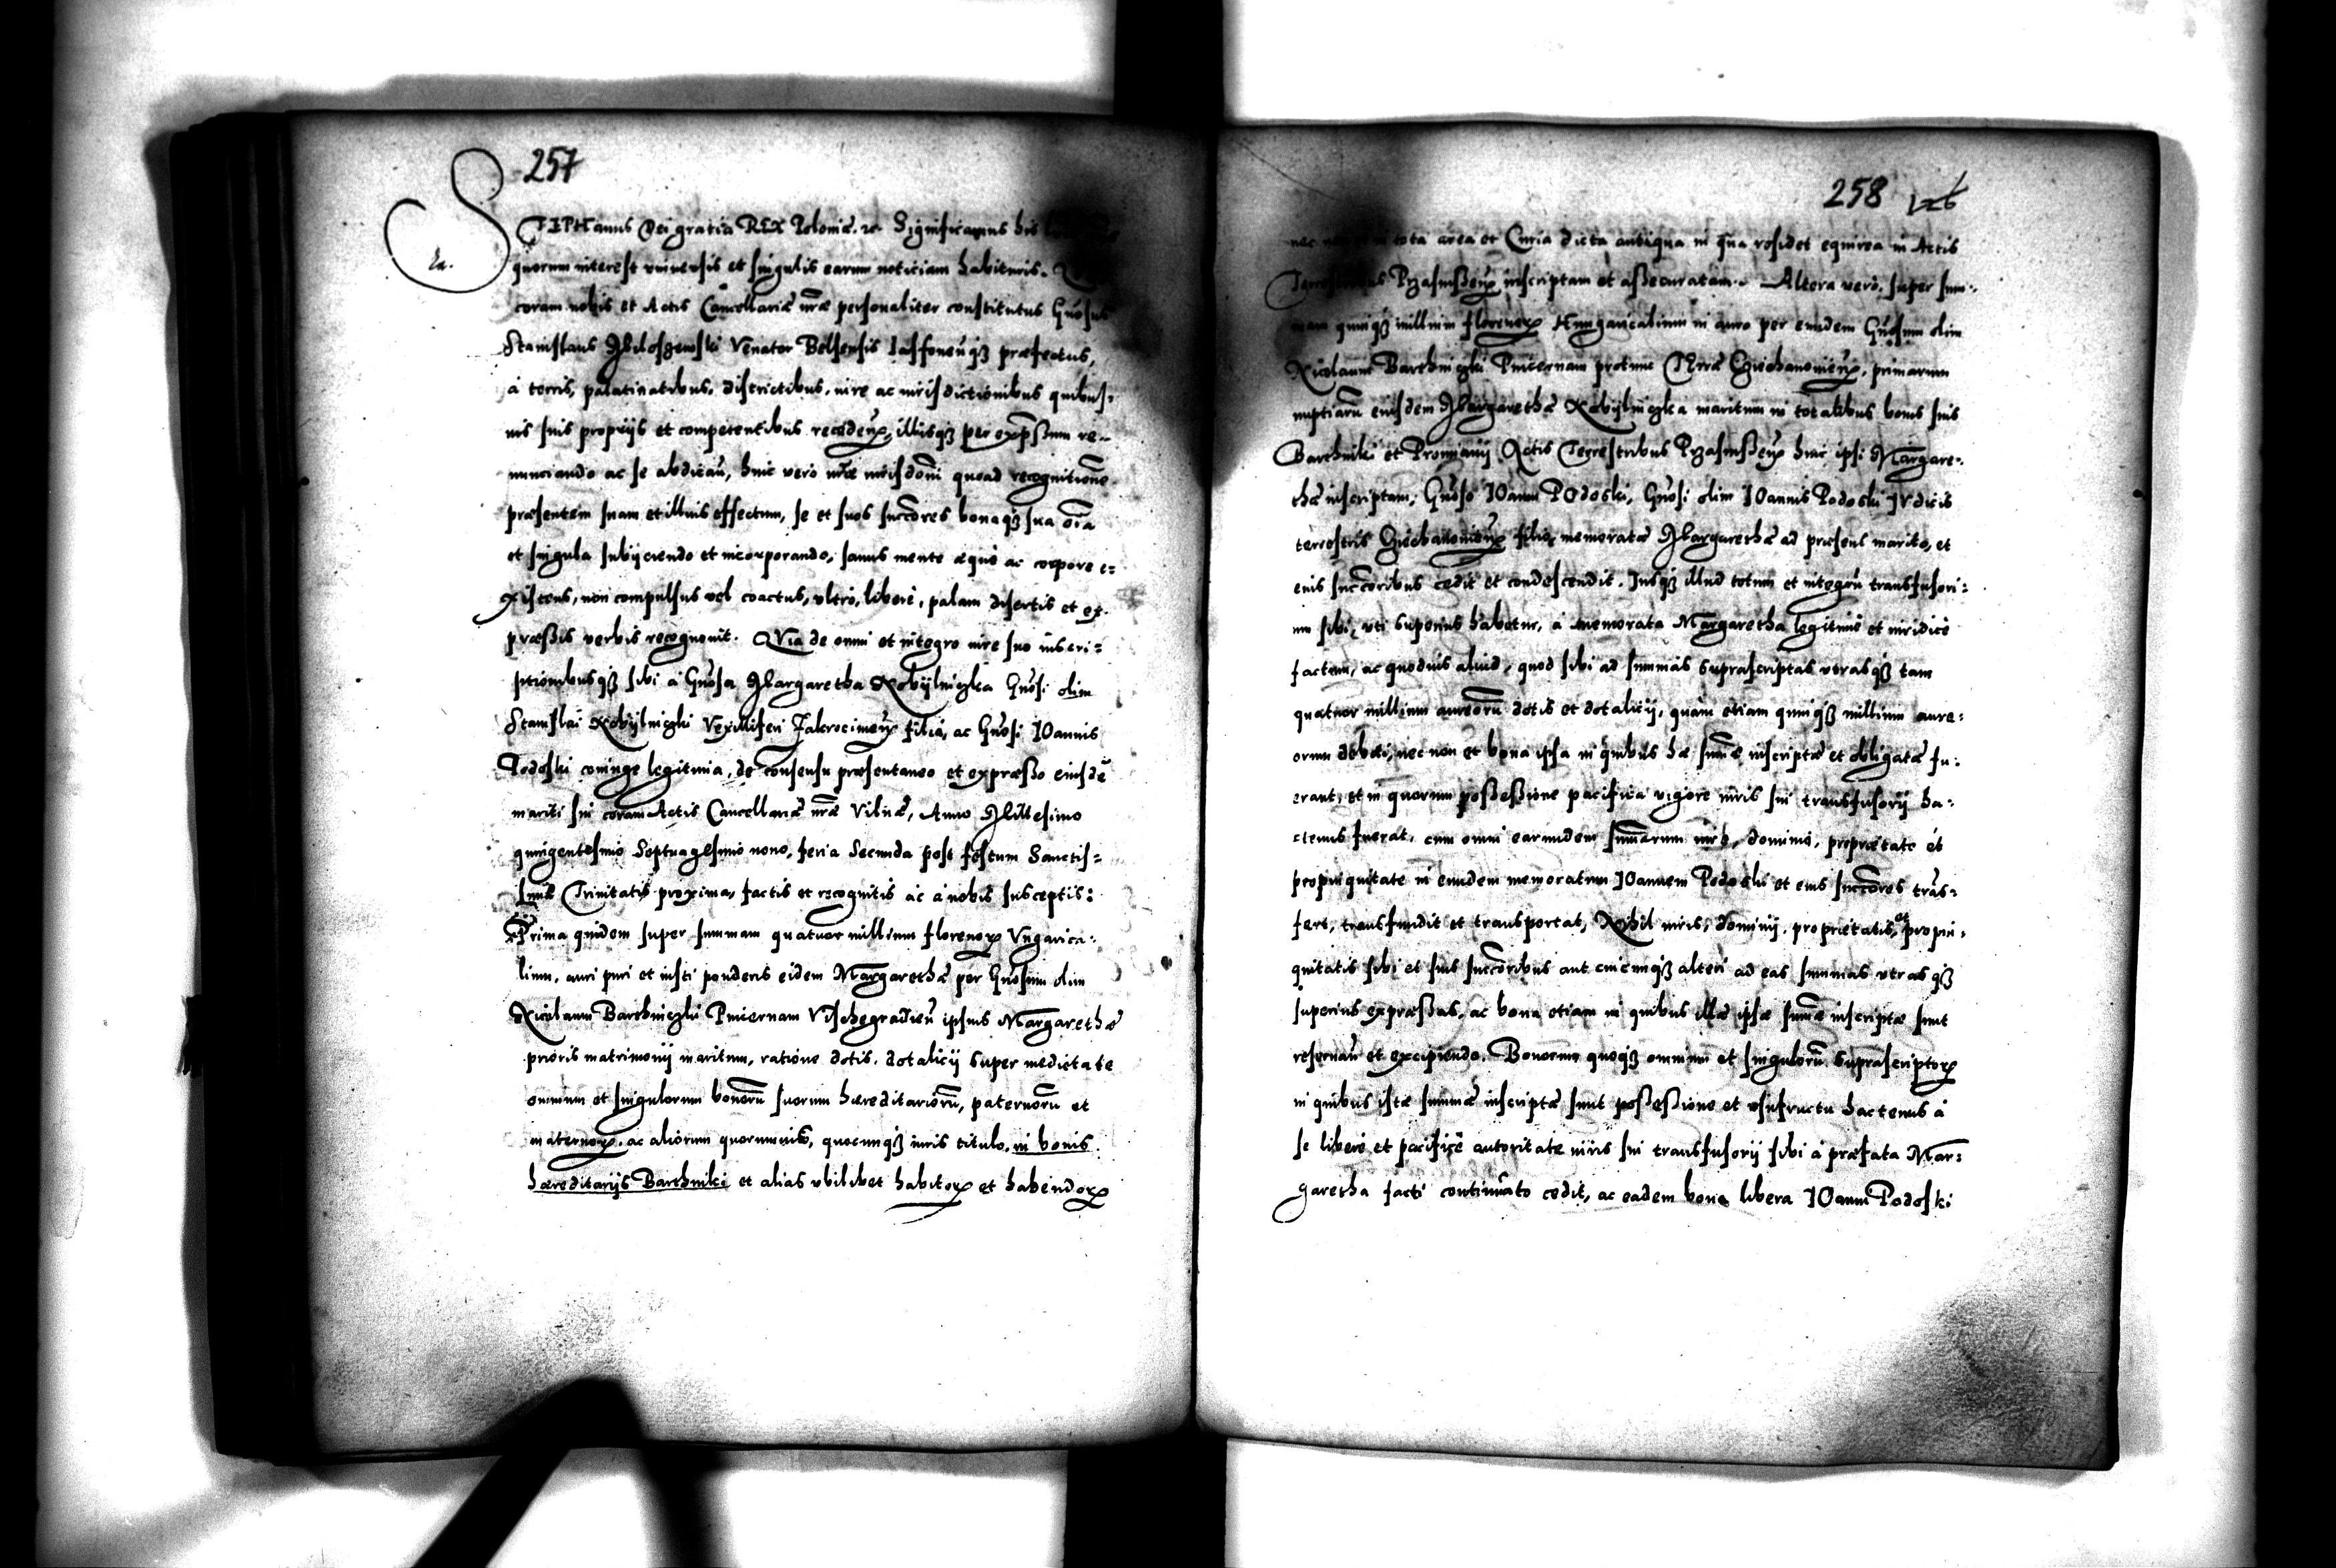 257
STEPHanus Dei gratia REX Poloniæ. etc. Significamus his
quorum interest vniuersis et singulis earum noticiam habituris.
coram nobis et Actis Cancellariæ nr̃æ personaliter constitutus Gñosus
Stanislaus Miloszewski Venator Belsensis Iasfonen̄ q₃ præfectus,
à terris, palatinatibus, districtibus, iure ac iurisdictionibus quibus-
uis suis proprijs et competentibus recedeñ, illisq₃ per exp̃ssum re-
nunciando ac se abdicañ, huic vero nr̃æ iurisdoñi quoad recognitionē
præsentem suam et illius effectum, se et suos succ̃ores bonaq₃ sua oīa
et singula subijciendo et incorporando, sanus mente æquè ac corpore e-
xistens, non compulsus vel coactus, vltrò, liberè, palam disertis et ex-
præssis verbis recognouit. QVia de omni et integro iure suo inscri-
ptionibusq₃ sibi à Gñosa Margaretha Kobijlniczka Gñosi olim
Stanislai Kobijlniczki Vexilliferi Zakrocimeñ filia, ac Gñosi IOannis
Podoski coniuge legitima, de consensu præsentaneo et expræsso eiusdē
mariti sui coram Actis Cancellariæ nr̃æ Vilnæ, Anno Millesimo
quingentesimo Septuagesimo nono, feria Secunda post festum Sanctis-
simæ Trinitatis proxima, factis et recognitis ac à nobis susceptis:
Prima quidem super summam quatuor millium florenoꝝ Vngarica-
lium, auri puri et iusti ponderis eidem Margarethæ per Gñosum olim
Nicolaum Barthniczki Pincernam Vischegradieñ ipsius Margarethæ
prioris matrimonij maritum, ratione dotis, dotalicij super medietate
omnium et singulorum bonorū suorum hæreditariorū, paternorū et
maternoꝝ, ac aliorum quorumuis, quocunq₃ iuris titulo, in bonis
hæreditarijs Barthniki et alias vbilibet habitoꝝ et habendoꝝ
258
tota area et Curia dicta antiqua in qua residet equirea in Actis
Przasnisseñ inscriptam et assecuratam. Altera verò, super sum-
mam quinq₃ millium florenoꝝ Hungaricalium in auro per eundem Gñosum olim
Nicolaum Barthniczki Pincernam protunc Terræ Cziechanouieñ, primarum
nuptiarū eiusdem Margarethæ Kobijlniczka maritum in totalibus bonis suis
Barthniki et Actis Terrestribus Przasnisseñ huic ipsi Margare-
thæ inscriptam, Gñoso IOanni POdoski, Gñosi olim IOannis Podoski IVdicis
terrestris Cziechanouieñ filio, memoratæ Margarethæ ad præsens marito, et
eius succ̃oribus cedit et condescendit. Iusq₃ illud totum et integrū transfusori-
um sibi, vti superius habetur, à memorata Margaretha legitimè et iuridicè
factum, ac quoduis aliud, quod sibi ad summas suprascriptas vtrasq₃ tam
quatuor millium aureorū dotis et dotalicij, quàm etiam quinq₃ millium aure-
orum debiti, nec non et bona ipsa in quibus hæ sum̃æ inscriptæ et obligatæ fu-
erant, et in quorum possessione pacifica vigore iuris sui transfusorij ha-
ctenus fuerat, cum omni earundem summarum iure, dominio, proprietate et
propinquitate in eundem memoratum IOannem Podoski et eius succ̃ores trās-
fert, transfundit et transportat, Nihil iuris, dominij, proprietatis, et propin-
quitatis sibi et suis succ̃oribus aut cuicunq₃ alteri ad eas summas vtrasq₃
superius expræssas, ac bona etiam in quibus illæ ipsæ sum̃æ inscriptæ sunt
reseruañ et excipiendo. Bonorum quoq₃ omnium et singulorū suprascriptoꝝ
in quibus istæ summæ inscriptæ sunt possessione et vsufructu hactenus à
se liberè et pacificè autoritate iuris sui transfusorij sibi à præfata Mar-
garetha facti continuato cedit, ac eadem bona libera IOanni Podoski